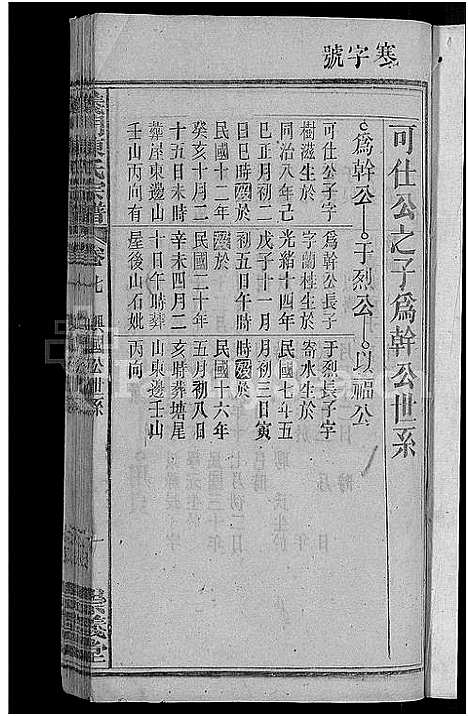 寒字號
可仕公之子爲幹公世系
爲幹公 于烈公 以福公
可仕公子字
樹滋生於
同治八年己
巳正月初二
日巳時歿於
民國十二年
癸亥十月二
十五日未時
葬屋東邊山
壬山丙向有
爲幹公長子
字蘭桂生於
光緒十四年
戊子十一月
初五日午時
歿於
民國二十年
辛未四月二
十日午時葬
屋後山石妣
于烈長子字
寄水生於
民國七年五
月初三日寅
時歿於
民國十六年
五月初八日
亥時葬塘尾
山東邊壬山
丙向
陳氏宗譜
卷七
興國公世系
十
義堂